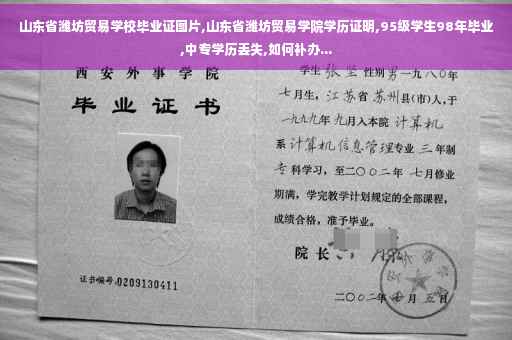 山东省潍坊贸易学校毕业证图片,山东省潍坊贸易学院学历证明,95级学生98年毕业
,中专学历丢失,如何补办...
西安外事学院
毕业证书
证书编号:0209130411
学生 张坚 性别 男 一九八〇年
七月生，江苏省 苏州县(市)人,于
一九九九年 九月入本院 计算机
系 计算机信息管理专业 三 年制
专 科学习，至二〇〇二年 七月修业
期满，学完教学计划规定的全部课程,
成绩合格，准予毕业。
院长
二〇〇二年 七 月 五 日